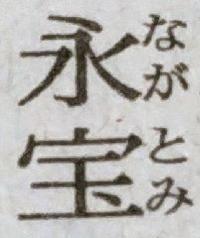 永宝
ながとみ